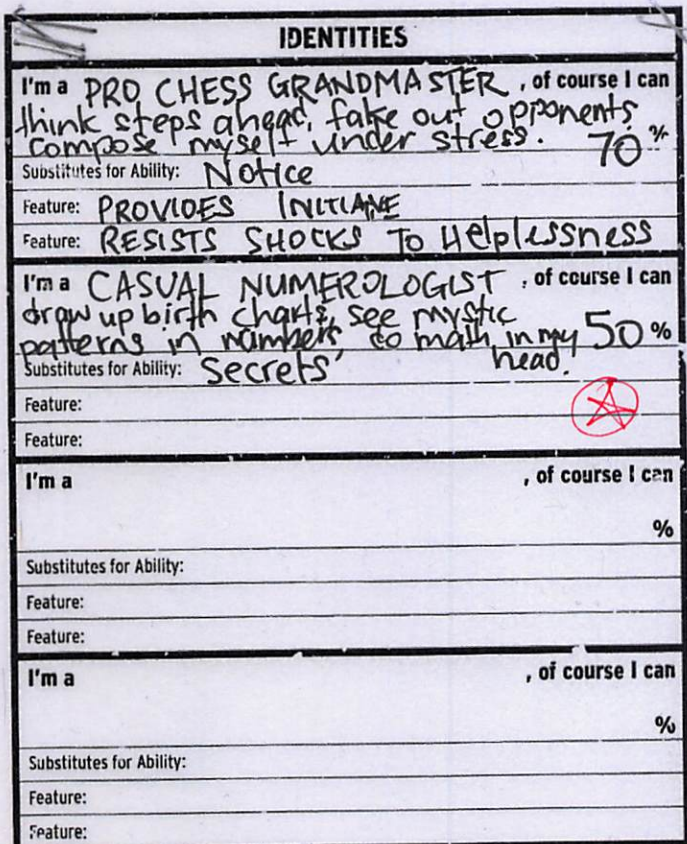 IDENTITIES
I'm a PRO CHESS GRANDMASTER , of course I can
think steps ahead, fake out opponents,
compose myself under stress. 70 %
Substitutes for Ability: Notice
Feature: PROVIDES INITIATIVE
Feature: RESISTS SHOCKS TO Helplessness
I'm a CASUAL NUMEROLOGIST , of course I can
draw up birth charts, see mystic
patterns in numbers, do math in my 50 %
Substitutes for Ability: Secrets head.
Feature:
Feature:
I'm a , of course I can
%
Substitutes for Ability:
Feature:
Feature:
I'm a , of course I can
%
Substitutes for Ability:
Feature:
Feature: